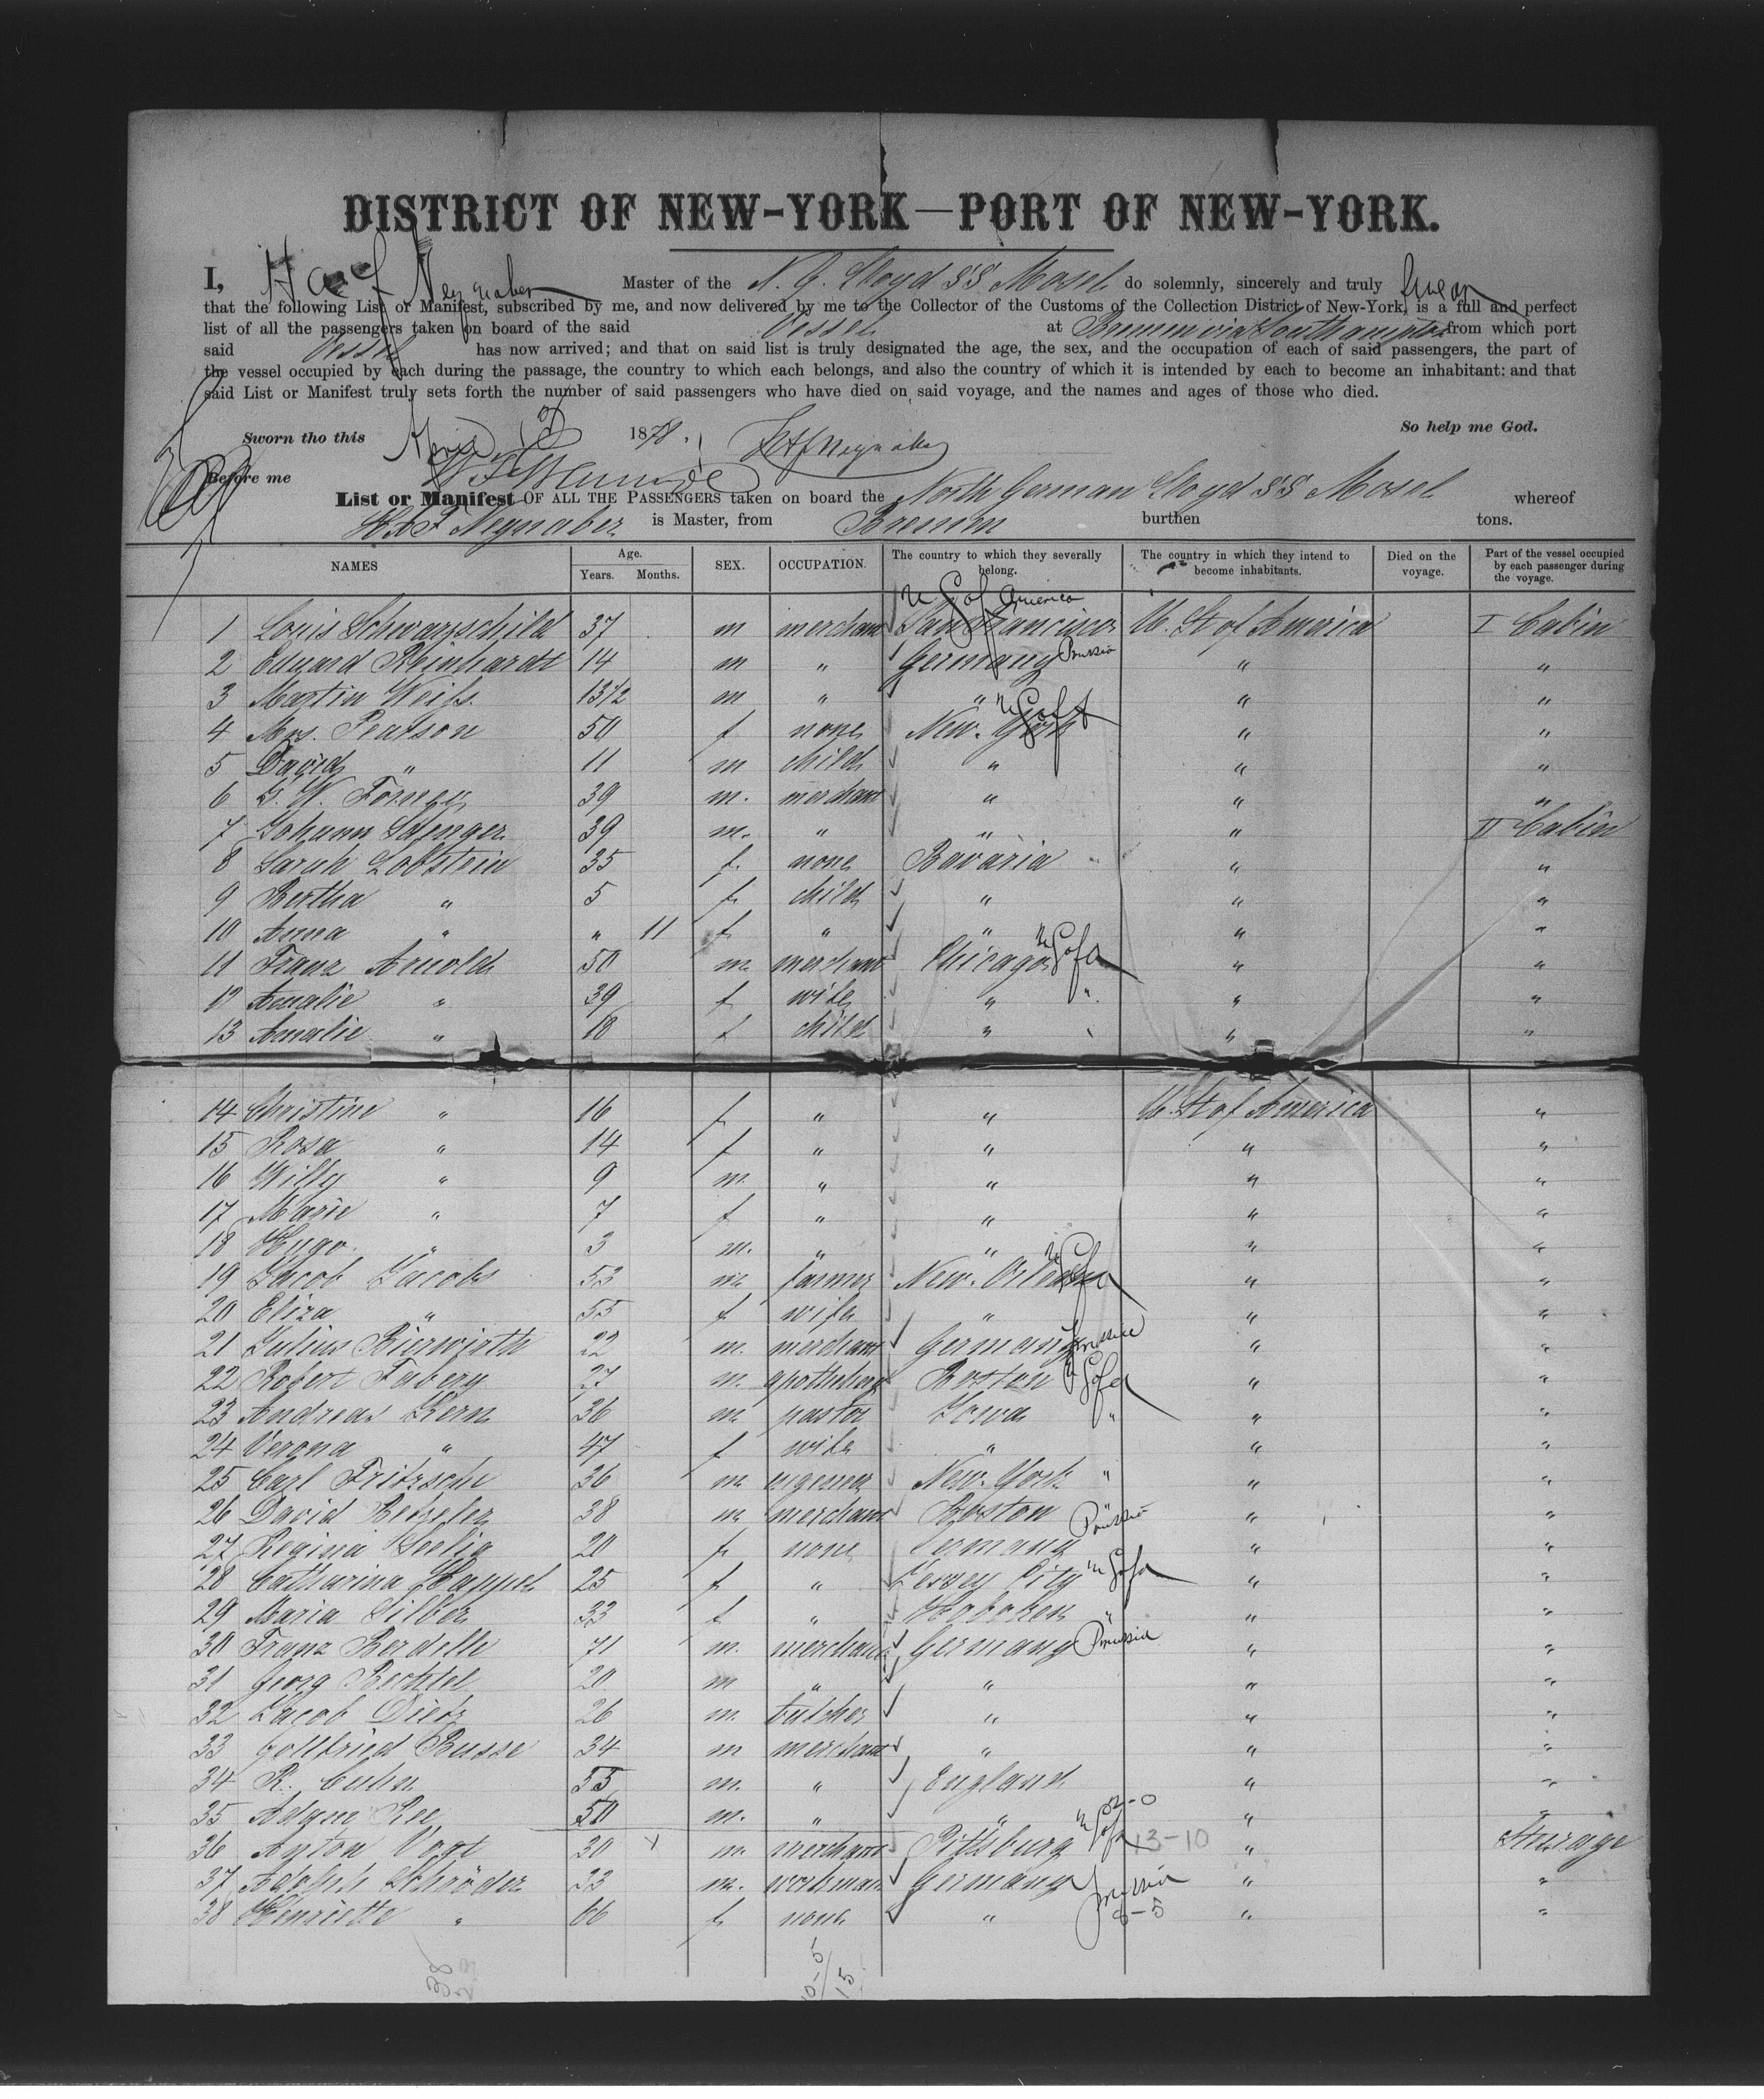 DISTRICT OF NEW-YORK—PORT OF NEW-YORK.
I, H A F Neynaber Master of the N. G. Lloyd SS Mosel do solemnly, sincerely and truly swear
that the following List or Manifest, subscribed by me, and now delivered by me to the Collector of the Customs of the Collection District of New-York, is a full and perfect
list of all the passengers taken on board of the said Vessel at Bremen via Southampton from which port
said Vessel has now arrived; and that on said list is truly designated the age, the sex, and the occupation of each of said passengers, the part of
the vessel occupied by each during the passage, the country to which each belongs, and also the country of which it is intended by each to become an inhabitant: and that
said List or Manifest truly sets forth the number of said passengers who have died on said voyage, and the names and ages of those who died.
Sworn tho this 1878. HAFNeynaber So help me God.
Before me
List or Manifest OF ALL THE PASSENGERS taken on board the North German Lloyd SS Mosel whereof
H.A.F Neynaber is Master, from Bremen burthen tons.
NAMES Age. Years. Months. SEX. OCCUPATION. The country to which they severally belong. The country in which they intend to become inhabitants. Died on the voyage. Part of the vessel occupied by each passenger during the voyage.
U S of America
1 Louis Schwarzschild 37 m merchant San Francisco U. St of America I Cabin
2 Eduard Reinhardt 14 m " Germany Prussia " "
3 Martin Weiss 13 1/2 m " " " "
4 Mrs. Pearson 50 f none New-York U S of A " "
5 David " 11 m child " " "
6 G. W. Forney 39 m. merchant " " "
7 Johann 39 m. " " " II Cabin
8 Sarah Lobstein 35 f. none Bavaria " "
9 Bertha " 5 f child " " "
10 Anna " " 11 f " " " "
11 Franz Arnold 50 m merchant Chicago U S of A " "
12 Amalie " 39 f wife " " " "
13 Amalie " 18 f child " " "
14 Christine " 16 f " " U. St of America "
15 Rosa " 14 f " " " "
16 Willy " 9 m. " " " "
17 Marie " 7 f " " " "
18 Hugo " 3 m. " " " "
19 Jacob Jacobs 53 m farmer New-Orleans U S of A " "
20 Eliza " 55 f wife " " "
21 Julius Bierwirth 22 m. merchant Germany Prussia " "
22 Robert Fabery 27 m. apotheker Boston U S of A " "
23 Andreas Kern 36 m pastor Iowa " " "
24 Verona " 47 f wife " " "
25 Carl Fritzsche 36 m engeneer New-York " " "
26 David 38 m merchant Boston " "
27 Regina Seelig 20 f none Germany Prussia " "
28 Catharina Happel 25 f " Jersey City U S of A " "
29 Maria Silber 33 f " Hoboken " " "
30 Franz Berdelle 71 m. merchant Germany Prussia " "
31 Georg Bechtel 20 m " " " "
32 Jacob Dietz 26 m. butcher " " "
33 Gottfried Busse 34 m merchant " " "
34 R. Cuhn 55 m. " England " "
35 50 m. " " " "
36 Anton Vogt 30 m. merchant Pittsburg U S of A 13-10 " Steerage
37 Adolph Schröder 33 m. workman Germany Prussia " "
38 Henriette " 66 f none " 8-5 " "
38
15